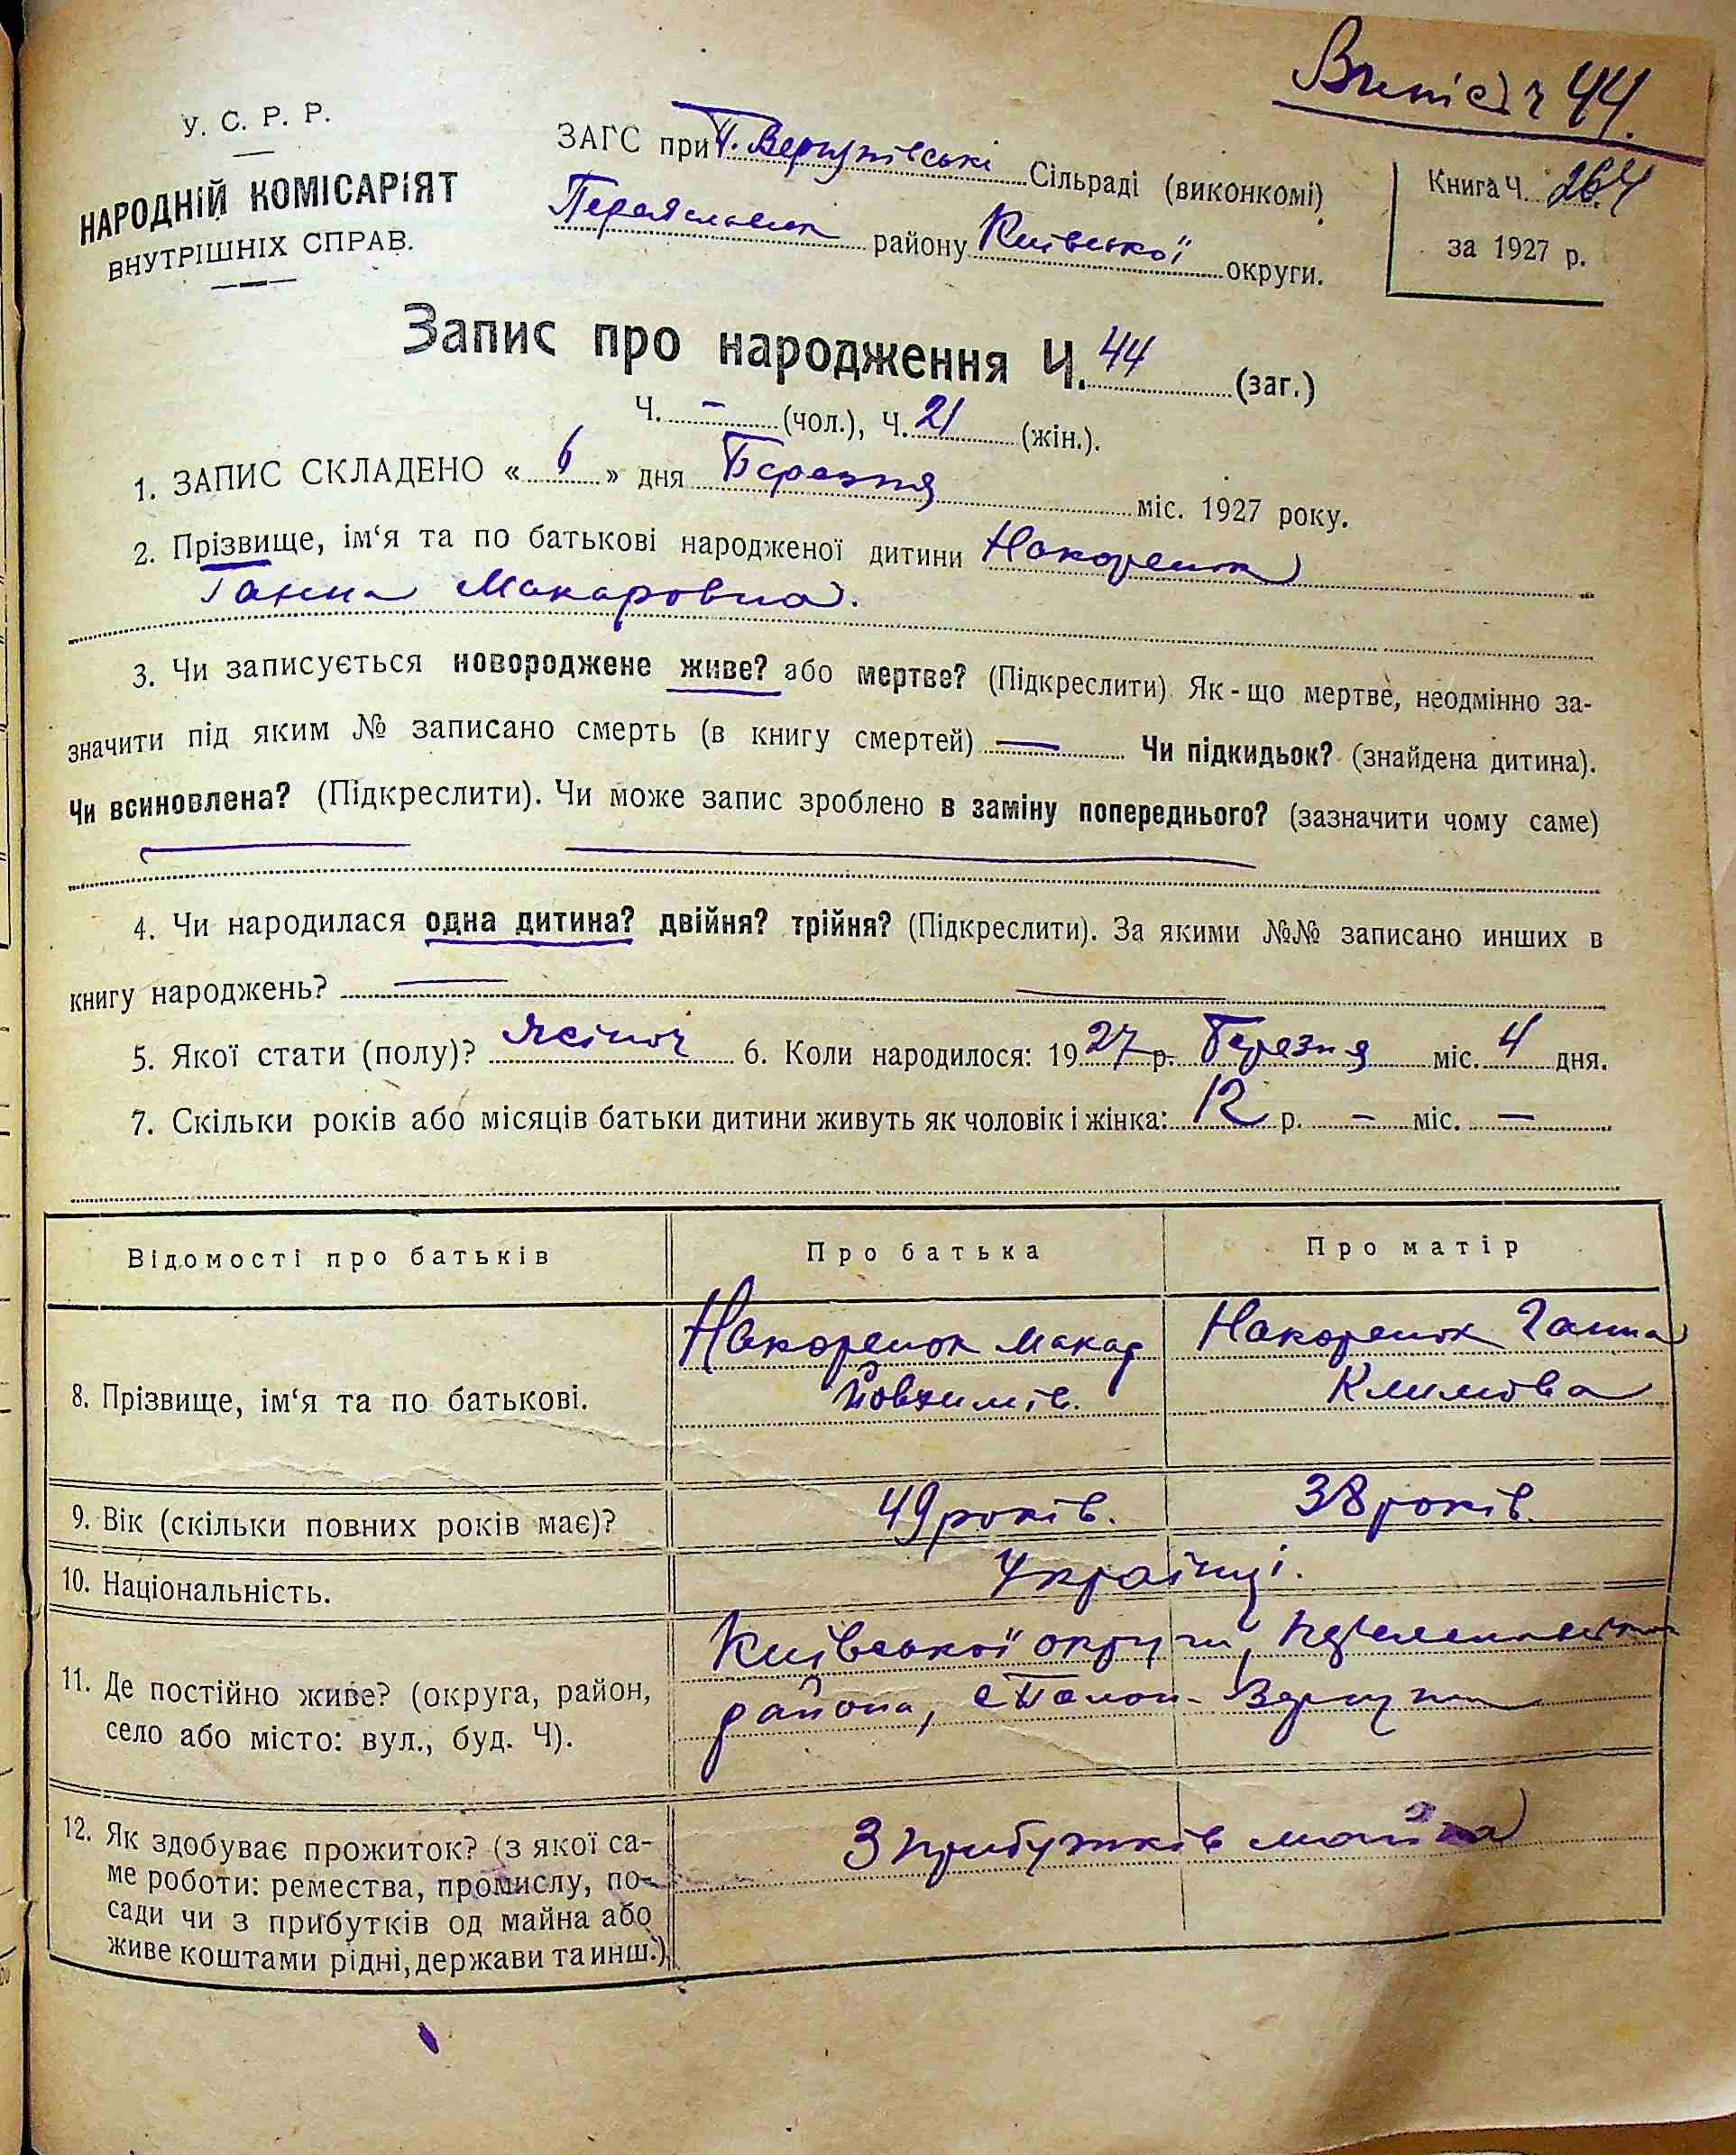 44.
У. С. Р. Р.
НАРОДНІЙ КОМІСАРІЯТ
ВНУТРІШНІХ СПРАВ.
ЗАГС при Сільраді (виконкомі)
району Київської округи.
Книга Ч. 264
за 1927 р.
Запис про народження Ч. 44 (заг.)
Ч. – (чол.), Ч. 21 (жін.).
1. ЗАПИС СКЛАДЕНО « 6 » дня Березня міс. 1927 року.
2. Прізвище, ім‘я та по батькові народженої дитини Накоренок
Ганна Макаровна.
3. Чи записується новороджене живе? або мертве? (Підкреслити) Як-що мертве, неодмінно за-
значити під яким № записано смерть (в книгу смертей) — Чи підкидьок? (знайдена дитина).
Чи всиновлена? (Підкреслити). Чи може запис зроблено в заміну попереднього? (зазначити чому саме)
4. Чи народилася одна дитина? двійня? трійня? (Підкреслити). За якими №№ записано инших в
книгу народжень? —
5. Якої стати (полу)? жіноч 6. Коли народилося: 1927 р. Березня міс. 4 дня.
7. Скільки років або місяців батьки дитини живуть як чоловік і жінка: 12 р. – міс. –
Відомості про батьків
Про батька
Про матір
8. Прізвище, ім‘я та по батькові.
Накоренок Макар
Йовхимів.
Накоренок Ганна
Климова
9. Вік (скільки повних років має)?
49 років.
38 років.
10. Національність.
Українці.
11. Де постійно живе? (округа, район,
село або місто: вул., буд. Ч).
Київської округи,
района,
12. Як здобуває прожиток? (з якої са-
ме роботи: ремества, промислу, по-
сади чи з прибутків од майна або
живе коштами рідні, держави та инш.)
З прибутків майна